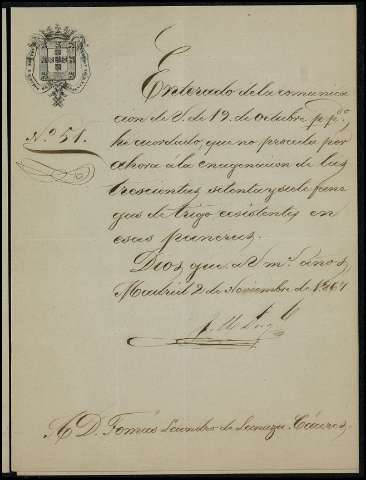 Nº 51.
Enterado de la comunica
cion de V. de 19. de octubre p.pdo.,
he acordado, que no proceda por
ahora á la enagenacion de las
trescientas setenta y siete fane
gas de trigo existentes en
esas paneras.
Dios gue. á V. ms. años,
Madrid 2 de Noviembre de 1864
A D. Tomás Leandro de Lanuza. Cáceres,